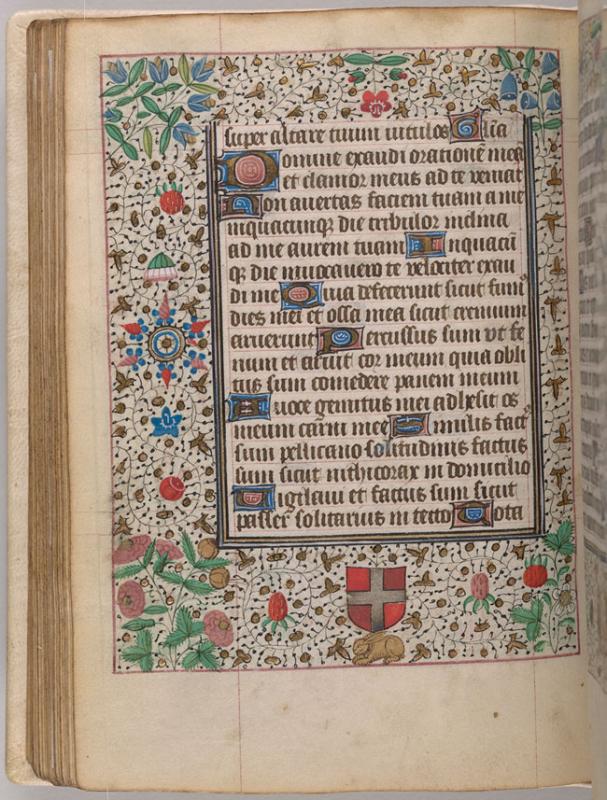 super altare tuum uitulos Gl̄ia
Domine exaudi oratione̅ mea
et clamor meus ad te veniat
Non auertas faciem tuam a me
inquacunq̨ die tribulor inclina
ad me aurem tuam In quacū
q̨ die inuocauero te velociter exau
di me Quia defecerunt sicut fum⁹
dies mei et ossa mea sicut cremium
aruerunt Percussus sum vt fe
num et aruit cor meum quia obli
tus sum comedere panem meum
A uoce gemitus mei adhesit os
meum carni mee Similis fact⁹
sum pellicano solitudinis factus
sum sicut nithicorax in domicilio
Vigilaui et factus sum sicut
passer solitarius in tecto Tota